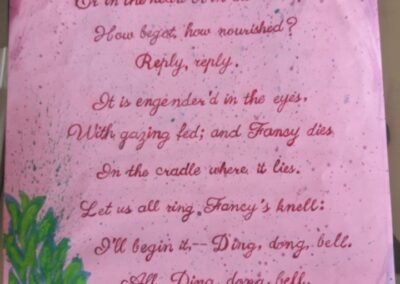 Or in the heart
How begot, how nourished?
Reply, reply.
It is engender'd in the eyes,
With gazing fed; and Fancy dies
In the cradle where it lies.
Let us all ring Fancy's knell:
I'll begin it,-- Ding, dong, bell.
All. Ding, dong, bell.